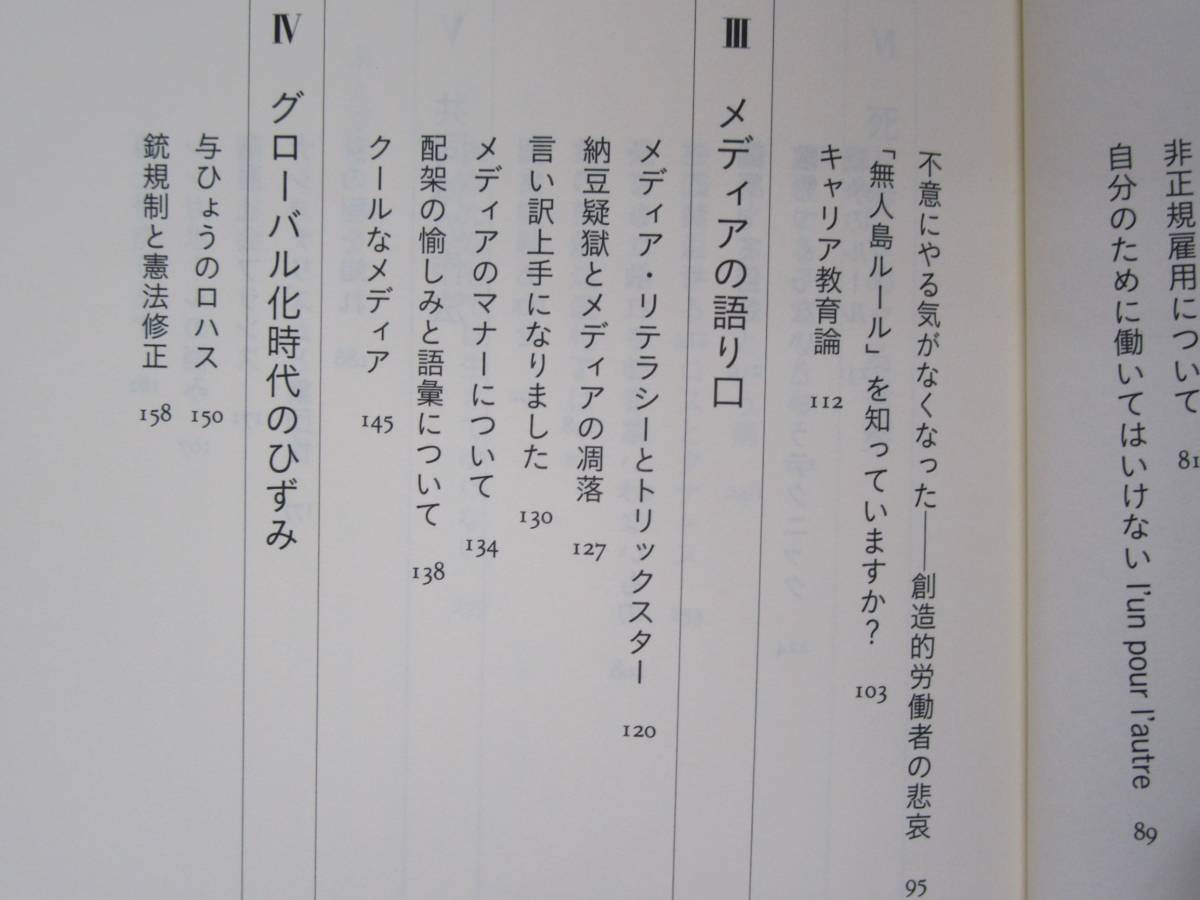 非正規雇用について 81
自分のために働いてはいけない l'un pour l'autre 89
不意にやる気がなくなった——創造的労働者の悲哀 95
「無人島ルール」を知っていますか? 103
キャリア教育論 112
Ⅲ メディアの語り口
メディア・リテラシーとトリックスター 120
納豆疑獄とメディアの凋落 127
言い訳上手になりました 130
メディアのマナーについて 134
配架の愉しみと語彙について 138
クールなメディア 145
Ⅳ グローバル化時代のひずみ
与ひょうのロハス 150
銃規制と憲法修正 158